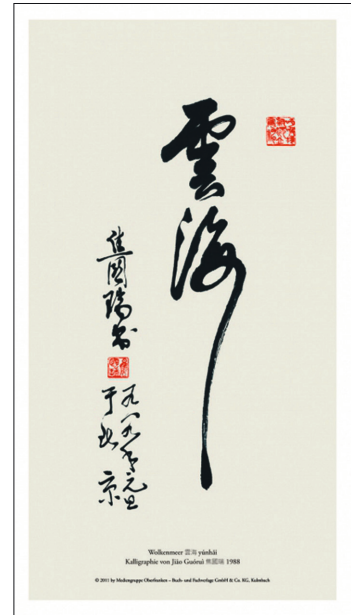 雲海
焦國瑞書
年元旦
于北京
Wolkenmeer 雲海 yúnhǎi
Kalligraphie von Jiāo Guóruì 焦國瑞 1988
© 2011 by Mediengruppe Oberfranken – Buch- und Fachverlage GmbH & Co. KG, Kulmbach